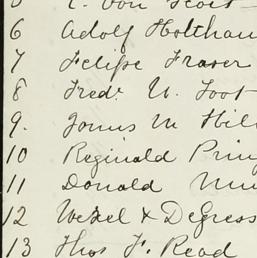 6 Adolf Holthau
7 Felipe Fraser
8 Fred. W. Foot
9. M Hil
10 Reginald Prin
11 Donald
12 Wexel & DeGress
13 Thos F. Read